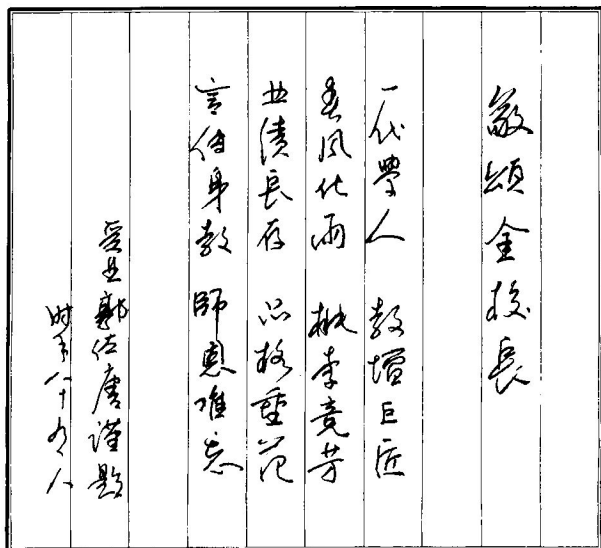 敬頌金校長
一代學人 教壇巨匠
春風化雨 桃李竞芳
业績長存 品格垂范
言傳身教 師恩难忘
受业郭佐唐謹題
时年八十有八